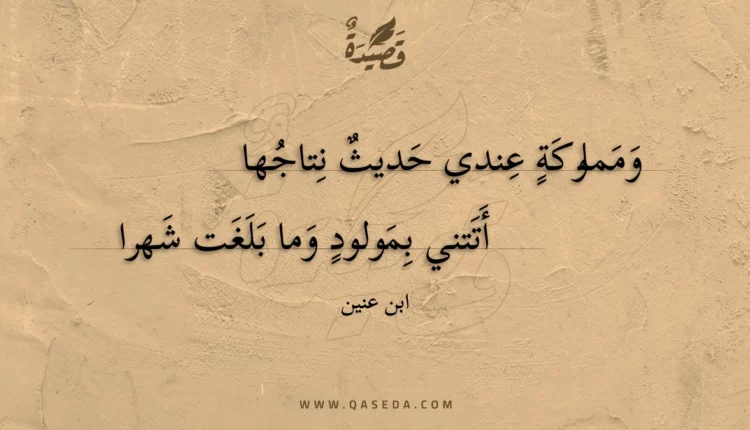 قَصِيدَةٌ
وَمَملوكَةٍ عِندي حَديثٌ نِتاجُها
أَتَتني بِمَولودٍ وَما بَلَغَت شَهرا
ابن عنين
WWW.QASEDA.COM